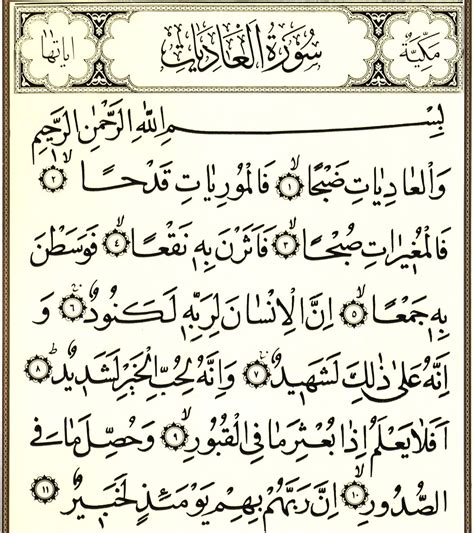 مكية سورة العاديات اياتها
بِسْمِ اللهِ الرَّحْمٰنِ الرَّحِيمِ
وَالْعَادِيَاتِ ضَبْحًا ﴿١﴾ فَالْمُورِيَاتِ قَدْحًا ﴿٢﴾
فَالْمُغِيرَاتِ صُبْحًا ﴿٣﴾ فَاَثَرْنَ بِهِ نَقْعًا ﴿٤﴾ فَوَسَطْنَ
بِهِ جَمْعًا ﴿٥﴾ اِنَّ الْاِنْسَانَ لِرَبِّهِ لَكَنُودٌ ﴿٦﴾ وَ
اِنَّهُ عَلٰى ذٰلِكَ لَشَهِيدٌ ﴿٧﴾ وَاِنَّهُ لِحُبِّ الْخَيْرِ لَشَدِيدٌ ﴿٨﴾
اَفَلَا يَعْلَمُ اِذَا بُعْثِرَ مَا فِي الْقُبُورِ ﴿٩﴾ وَحُصِّلَ مَا فِي
الصُّدُورِ ﴿١٠﴾ اِنَّ رَبَّهُمْ بِهِمْ يَوْمَئِذٍ لَخَبِيرٌ ﴿١١﴾